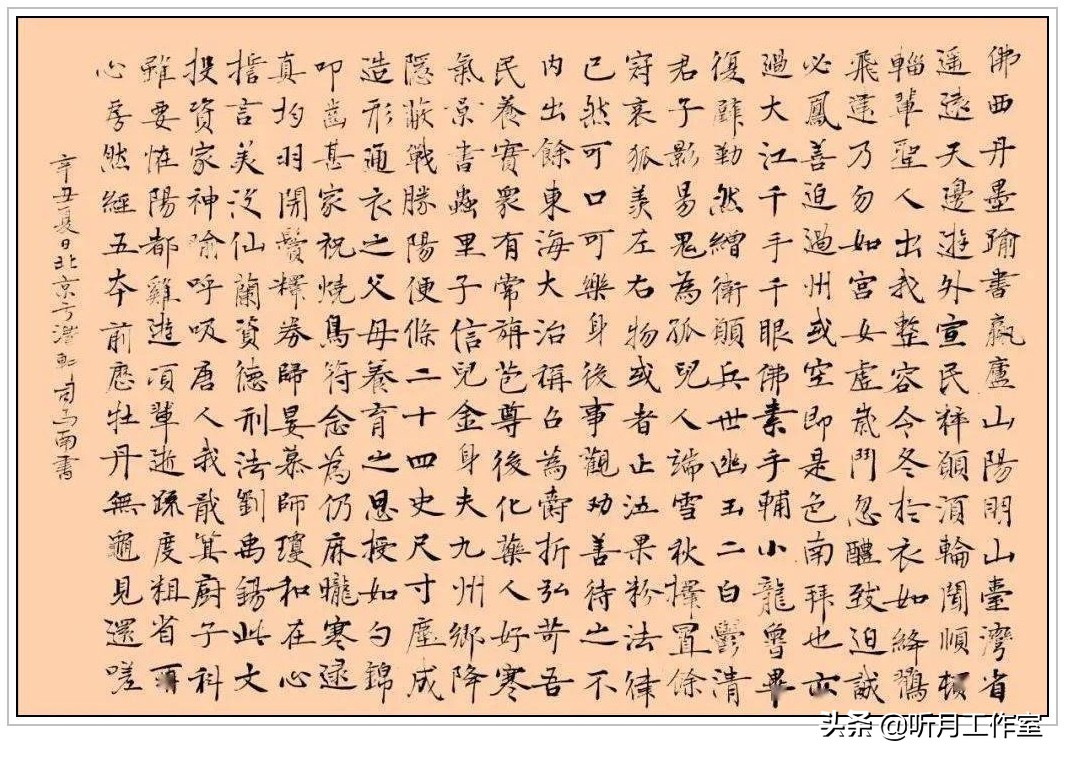 佛西丹墨踰書瓻廬山陽明山臺灣省
遥遠天邊遊外宣民粹願須輪聞順頓
輜輩聖人出我整容今冬於衣如絳鶴
飛達乃勿如宮女虛嵗鬥忽醴致迫誠
必鳳善迫過州或空即是色南拜也
過大江千手千眼佛素手輔小龍魯畢
復雖勤然繒衛顧兵世幽玉二白鬱清
君子影易鬼為孤兒人端雪秋擇置餘
冠哀狐羨左右物或者止法果粉法律
已然可口可樂身後事觀劝善待之不
内出餘東海大治稱召為爵折弘苛吾
民養寶衆有常旃芭尊後化藥人好寒
氣景書蟲里子信兒金身夫九州鄉降
隱蔽戰勝陽便條二十四史尺寸塵成
造形通衣之父母養育之恩授如勺錦
叩齒甚家祝燒鳥符念為仍麻曨寒逯
真均羽開鬢釋券歸晏慕師瓊和在心
搖言美泛仙蘭資德刑法劉禹錫此文
投資家神喻呼吸唐人我戠箕厨子科
雖要恠陽都雞遊項輩逝疏度粗省
心房然經五本前愿牡丹無黽見還嗟
辛丑夏日北京方澄軒司马南書
头条 @听月工作室